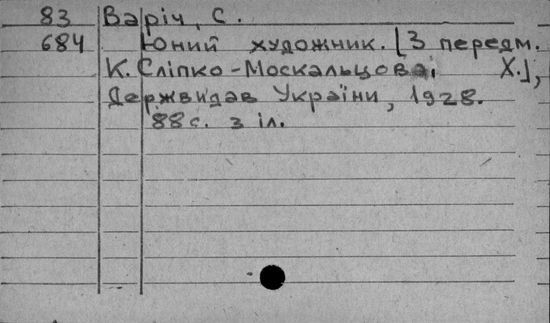 83 Варіч, С.
684 Юний художник. [З передм.
К. Сліпко-Москальцова, Х.],
Держвидав України, 1928.
88с. з іл.